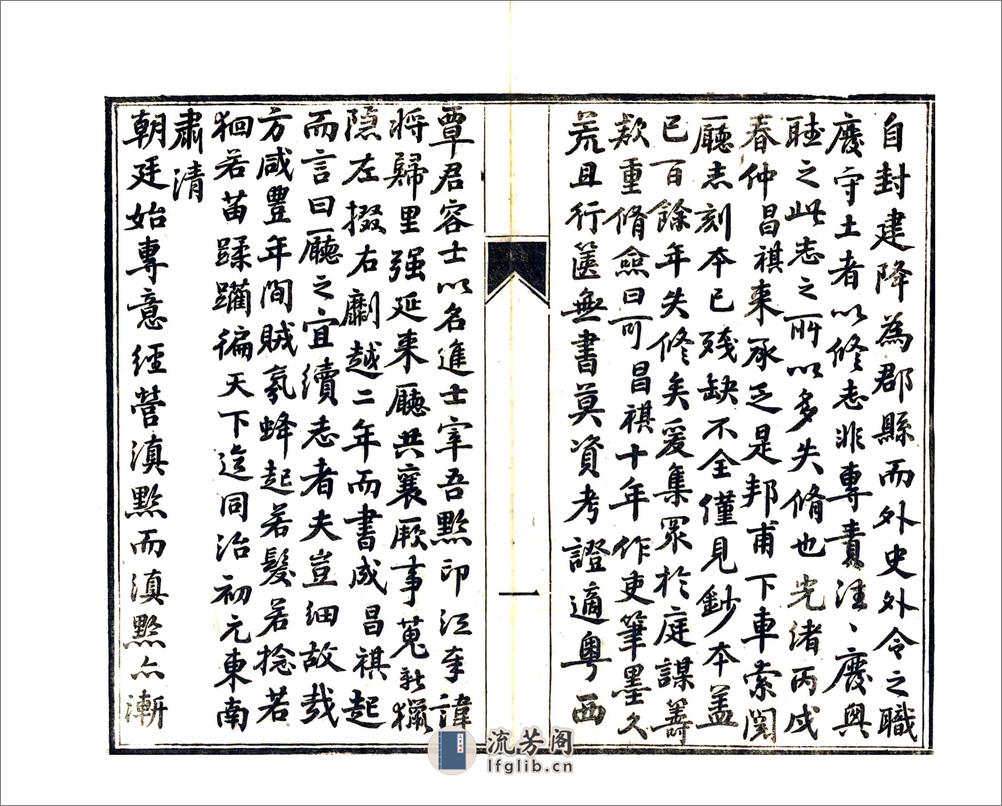 自封建降為郡縣而外史外令之職
廢守土者以修志非專責往〻廢興
聽之此志之所以多失脩也光緒丙戌
春仲昌祺来承乏是邦甫下車索閱
廳志刻本已殘缺不全僅見鈔本蓋
已百餘年失修矣爰集眾於庭謀籌
款重脩僉曰可昌祺十年作吏筆墨久
荒且行篋無書莫資考證適粤西
一
覃君容士以名進士宰吾黔印江奉諱
將歸里强延来廳共襄厥事蒐新獵
隱左掇右劚越二年而書成昌祺起
而言曰廳之宜續志者夫豈細故哉
方咸豐年間賊氛蜂起若髮若捻若
徊若苗蹂躪徧天下迨同治初元東南
肅清
朝廷始專意經營滇黔而滇黔亦漸
流芳阁
lfglib.cn